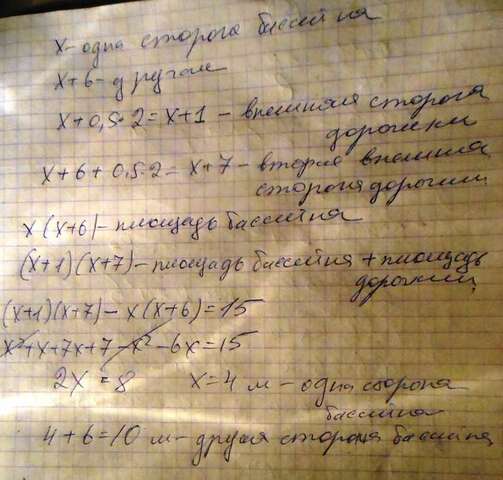 х - одна сторона бассейна
х+6 - другая
х+0,5·2=х+1 - внешняя сторона
дорожки
х+6+0,5·2=х+7 - вторая внешняя
сторона дорожки
х(х+6) - площадь бассейна
(х+1)(х+7) - площадь бассейна + площадь
дорожки
(х+1)(х+7) - х(х+6)=15
х²+х+7х+7-х²-6х=15
2х=8 х=4 м - одна сторона
бассейна
4+6=10 м - другая сторона бассейна